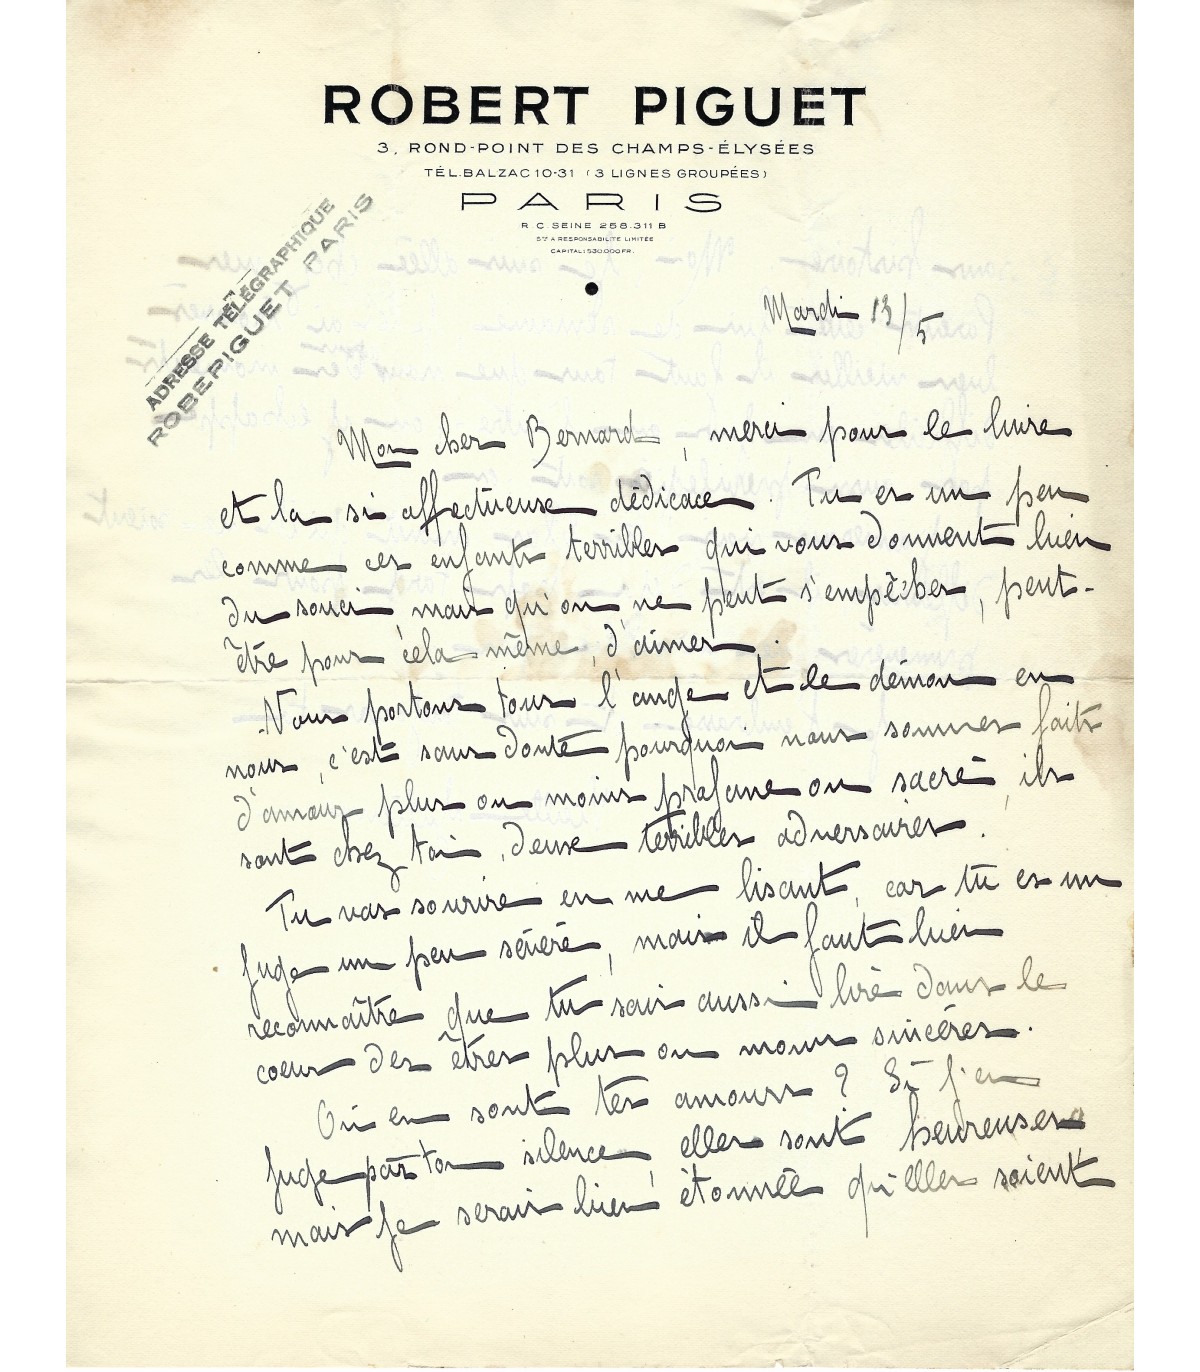 ROBERT PIGUET
3, ROND-POINT DES CHAMPS-ÉLYSÉES
TÉL. BALZAC 10-31 (3 LIGNES GROUPÉES)
PARIS
R.C. SEINE 258.311 B
STÉ A RESPONSABILITÉ LIMITÉE
CAPITAL: 530.000 FR.
ADRESSE TÉLÉGRAPHIQUE
ROBEPIGUET PARIS
Mardi 13/5
Mon cher Bernard, merci pour le livre
et la si affectueuse dédicace. Tu es un peu
comme ces enfants terribles qui vous donnent bien
du souci mais qu'on ne peut s'empêcher, peut-
être pour cela même, d'aimer.
Nous portons tous l'ange et le démon en
nous, c'est sans doute pourquoi nous sommes faits
d'amour plus ou moins profane ou sacré, ils
sont chez toi, deux terribles adversaires.
Tu vas sourire en me lisant, car tu es un
juge un peu sévère, mais il faut bien
reconnaître que tu sais aussi lire dans le
coeur des êtres plus ou moins sincères.
Où en sont tes amours ? Si j'en
juge par ton silence, elles sont heureuses
mais je serais bien étonnée qu'elles soient